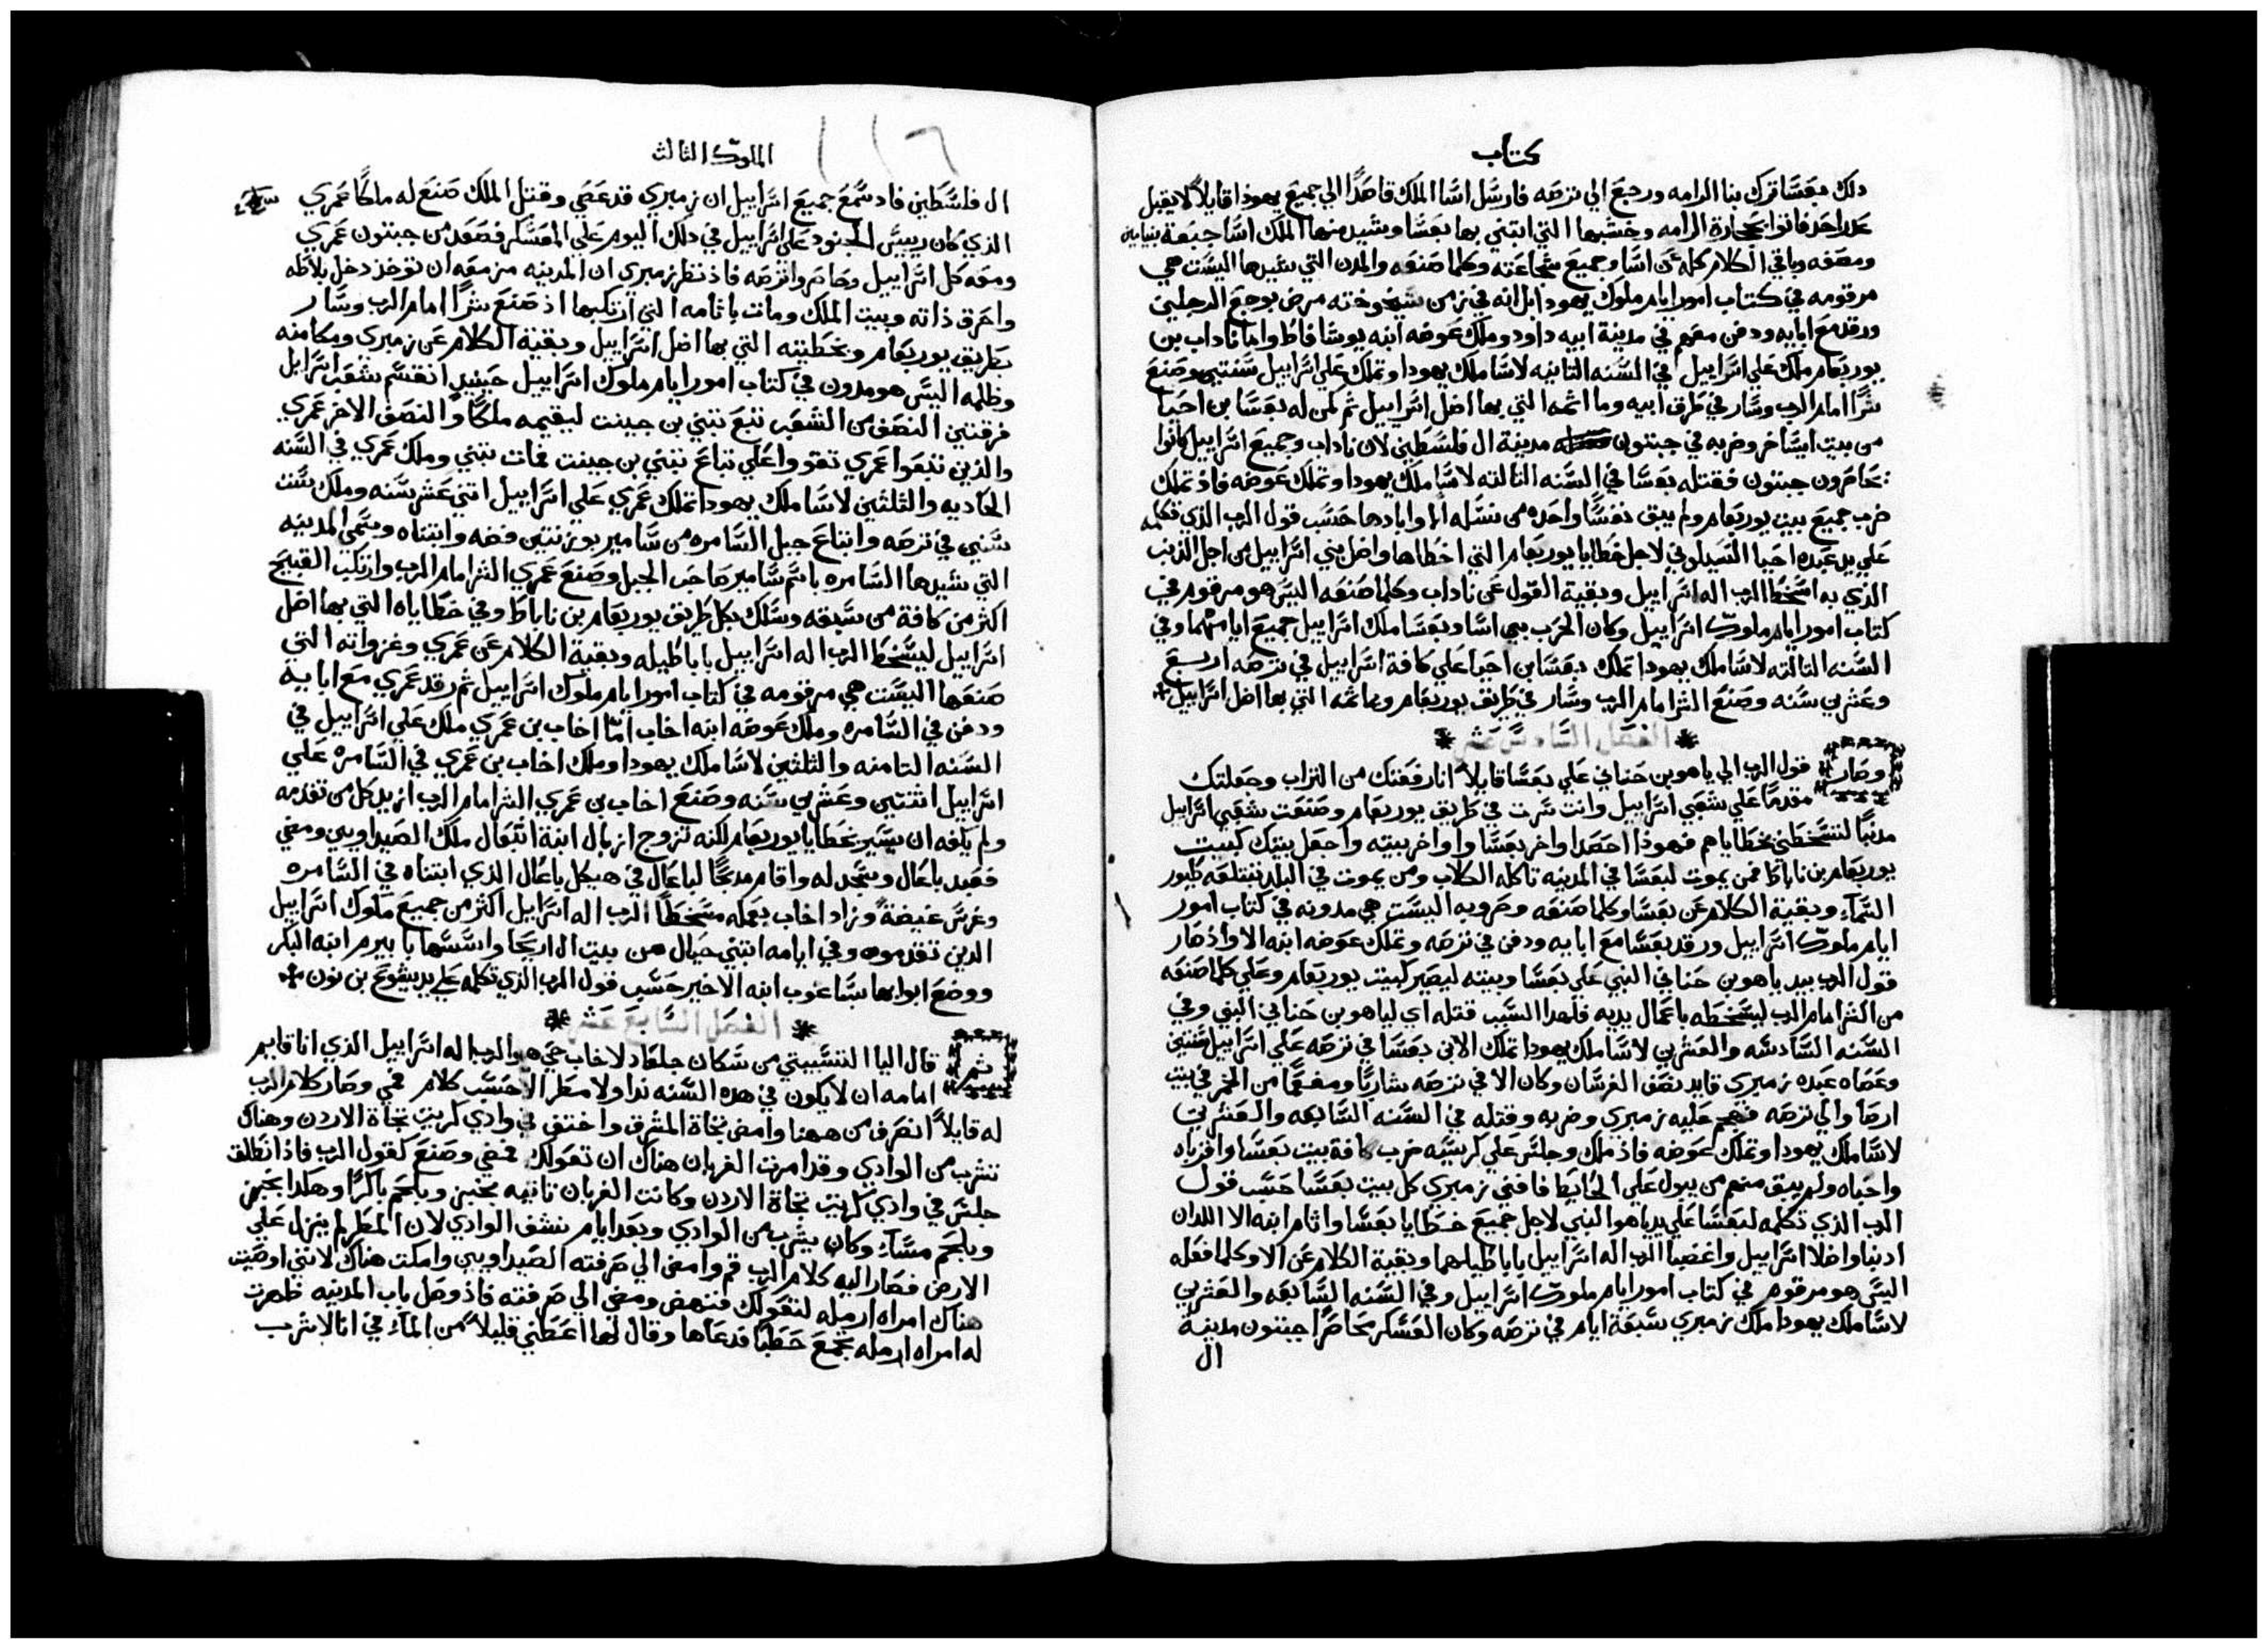 كتاب
دلك بعسا ترك بنا الرامه ورجع الي ترصه فارسل اسا الملك قاصدا الي جميع يهودا قايلا لا يقبل
عدر احد فاتوا بحجارة الرامه وخشبها التي ابتني بها بعسا وشيد منها الملك اسا جبعة بنيامين
ومصفه وباقي الكلام كله عن اسا وجميع شجاعته وكلما صنعه والمدن التي شيدها اليست هي
مرقومه في كتاب امور ايام ملوك يهودا بل انه في زمن شيخوخته مرض بوجع الرجلين
ورقد مع ابايه ودفن معهم في مدينة ابيه داود وملك عوضه ابنه يوشافاط واما ناداب بن
يوربعام ملك علي اسراييل في السنه التانيه لاسا ملك يهودا وتملك علي اسراييل سنتين وصنع
شرا امام الرب وسار في طرق ابيه وماثمه التي بها اضل اسراييل ثم كمن له بعسا بن احيا
من بيت ايساخر وضربه في جبتون مدينة ال فلسطين لان ناداب وجميع اسراييل كانوا
يحاصرون جبتون فقتله بعسا في السنه التالته لاسا ملك يهودا وتملك عوضه فاذ تملك
ضرب جميع بيت يوربعام ولم يبق نفسا واحده من نسله الا وابادها حسب قول الرب الذي تكلمه
علي يد عبده احيا السيلوني لاجل خطايا يوربعام التي اخطاها واضل بني اسراييل من اجل الذنب
الذي به اسخط الرب اله اسراييل وبقية القول عن ناداب وكلما صنعه اليس هو مرقوم في
كتاب امور ايام ملوك اسراييل وكان الحرب بين اسا وبعسا ملك اسراييل جميع ايامهما وفي
السنه التالته لاسا ملك يهودا تملك بعسا بن احيا علي كافة اسراييل في ترصه اربع
وعشرين سنه وصنع الشر امام الرب وسار في طريق يوربعام وماثمه التي بها اضل اسراييل
الفصل السادس عشر
وصار قول الرب الي ياهو بن حناني علي بعسا قايلا انا رفعتك من التراب وجعلتك
مقدما علي شعبي اسراييل وانت سرت في طريق يوربعام وصنعت شعبي اسراييل
مدنبا لتسخطني بخطاياهم فهوذا احصد اواخر بعسا واواخر بيته واجعل بيتك كبيت
يوربعام بن ناباط فمن يموت لبعسا في المدينه تاكله الكلاب ومن يموت في البلد تبتلعه طيور
السماء وبقية الكلام عن بعسا وكلما صنعه وحروبه اليست هي مدونه في كتاب امور
ايام ملوك اسراييل ورقد بعسا مع ابايه ودفن في ترصه وتملك عوضه ابنه الا واذ صار
قول الرب بيد ياهو بن حناني النبي علي بعسا وبيته ليصير كبيت يوربعام وعلي كلما صنعه
من الشر امام الرب ليسخطه باعمال يديه فلهدا السبب قتله اي لياهو بن حناني النبي وفي
السنه السادسه والعشرين لاسا ملك يهودا تملك الا بن بعسا في ترصه علي اسراييل سنتين
وعصاه عبده زميري قايد نصف الفرسان وكان الا في ترصه شاربا ومفعما من الخمر في بيت
ارصا والي ترصه فهجم عليه زميري وضربه وقتله في السنه السابعه والعشرين
لاسا ملك يهودا وتملك عوضه فاذ ملك وجلس علي كرسيه ضرب كافة بيت بعسا واقرباه
واحباه ولم يبق منهم من يبول علي الحايط فافني زميري كل بيت بعسا حسب قول
الرب الذي تكلمه لبعسا علي يد ياهو النبي لاجل جميع خطايا بعسا واثام ابنه الا اللدان
ادنبا واضلا اسراييل واغضبا الرب اله اسراييل باباطيلهما وبقية الكلام عن الا وكلما فعله
اليس هو مرقوم في كتاب امور ايام ملوك اسراييل وفي السنه السابعه والعشرين
لاسا ملك يهودا ملك زميري سبعة ايام في ترصه وكان العسكر محاصرا جبتون مدينة
ال
الملوك الثالث
١١٦
ال فلسطين فاد سمع جميع اسراييل ان زميري قد عصي وقتل الملك صنع له ملكا عمري
الذي كان رييس الجنود علي اسراييل في دلك اليوم علي المعسكر فصعد من جبتون عمري
ومعه كل اسراييل وحاصروا ترصه فاذ نظر زميري ان المدينه مزمعه ان توخذ دخل بلاطه
واحرق ذاته وبيت الملك ومات باثامه التي ارتكبها اذ صنع شرا امام الرب وسار
بطريق يوربعام وبخطيته التي بها اضل اسراييل وبقية الكلام عن زميري ومكامنه
وظلمه اليس هو مدون في كتاب امور ايام ملوك اسراييل حينيد انقسم شعب اسراييل
فرقتين النصف من الشعب تبع تبني بن جينت ليقيمه ملكا والنصف الاخر عمري
والذين تبعوا عمري تقووا علي تباع تبني بن جينت فمات تبني وملك عمري في السنه
الحاديه والثلثين لاسا ملك يهودا تملك عمري علي اسراييل اتني عشر سنه وملك ست
سنين في ترصه وابتاع جبل السامره من سامير بوزنتين فضه وابتناه وسمي المدينه
التي شيدها السامره باسم سامير صاحب الجبل وصنع عمري الشر امام الرب وارتكب القبيح
اكثر من كافة من سبقه وسلك بكل طريق يوربعام بن ناباط وفي خطاياه التي بها اضل
اسراييل ليسخط الرب اله اسراييل باباطيله وبقية الكلام عن عمري وغزواته التي
صنعها اليست هي مرقومه في كتاب امور ايام ملوك اسراييل ثم رقد عمري مع ابايه
ودفن في السامره وملك عوضه ابنه اخاب اما اخاب بن عمري ملك علي اسراييل في
السنه التامنه والثلثين لاسا ملك يهودا وملك اخاب بن عمري في السامره علي
اسراييل اثنتين وعشرين سنه وصنع اخاب بن عمري الشر امام الرب ازيد كل من تقدمه
ولم يكفه ان يسير بخطايا يوربعام لكنه تزوج ازبال ابنة اتبعال ملك الصيداويين ومضي
فعبد باعال وسجد له واقام مدبحا لباعال في هيكل باعال الذي ابتناه في السامره
وغرس غيضة وزاد اخاب بعمله مسخطا الرب اله اسراييل اكثر من جميع ملوك اسراييل
الدين تقدموه وفي ايامه ابتني حيال من بيت ال اريحا واسسها بابيرم ابنه البكر
ووضع ابوابها بساغوب ابنه الاخير حسب قول الرب الذي تكلمه علي يد يشوع بن نون
الفصل السابع عشر
ثم قال اليا التسبيتي من سكان جلعاد لاخاب حي هو الرب اله اسراييل الذي انا قايم
امامه ان لا يكون في هده السنه ندا ولا مطر الا حسب كلام فمي وصار كلام الرب
له قايلا انصرف من ههنا وامض تجاة المشرق واختف في وادي كريت تجاة الاردن وهناك
تشرب من الوادي وقد امرت الغربان هناك ان تعولك فمضي وصنع كقول الرب فاذ انطلق
جلس في وادي كريت تجاة الاردن وكانت الغربان تاتيه بخبز وبلحم باكرا وهكدا بخبز
وبلحم مساء وكان يشرب من الوادي وبعد ايام نشف الوادي لان المطر لم ينزل علي
الارض فصار اليه كلام الرب قم وامض الي صرفته الصيداويين وامكت هناك لانني اوصيت
هناك امراه ارمله لتقولك فنهض ومضي الي صرفته فاذ وصل باب المدينه ظهرت
له امراه ارمله تجمع حطبا فدعاها وقال لها اعطني قليلا من الماء في انا لاشرب